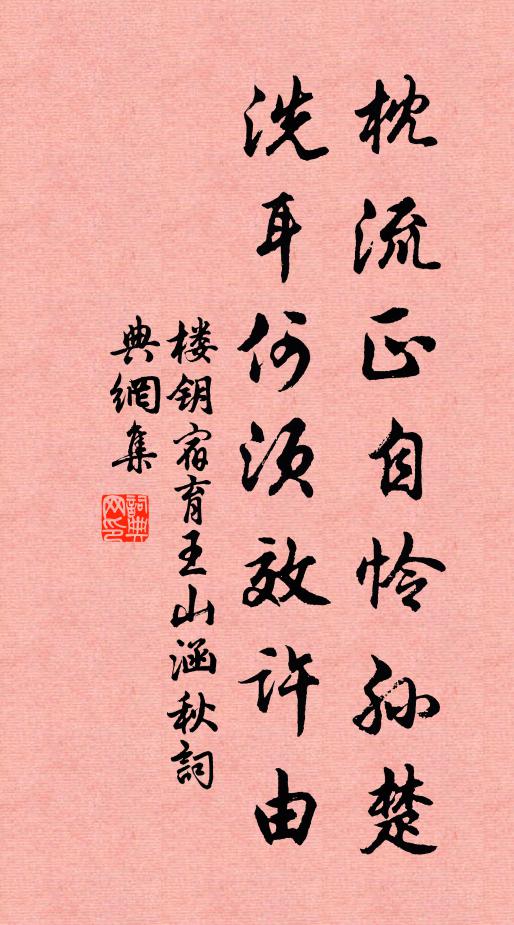 枕流正自怜孙楚
洗耳何须效许由
楼钥宿育王山涵秋詞
典網集
詞典网印